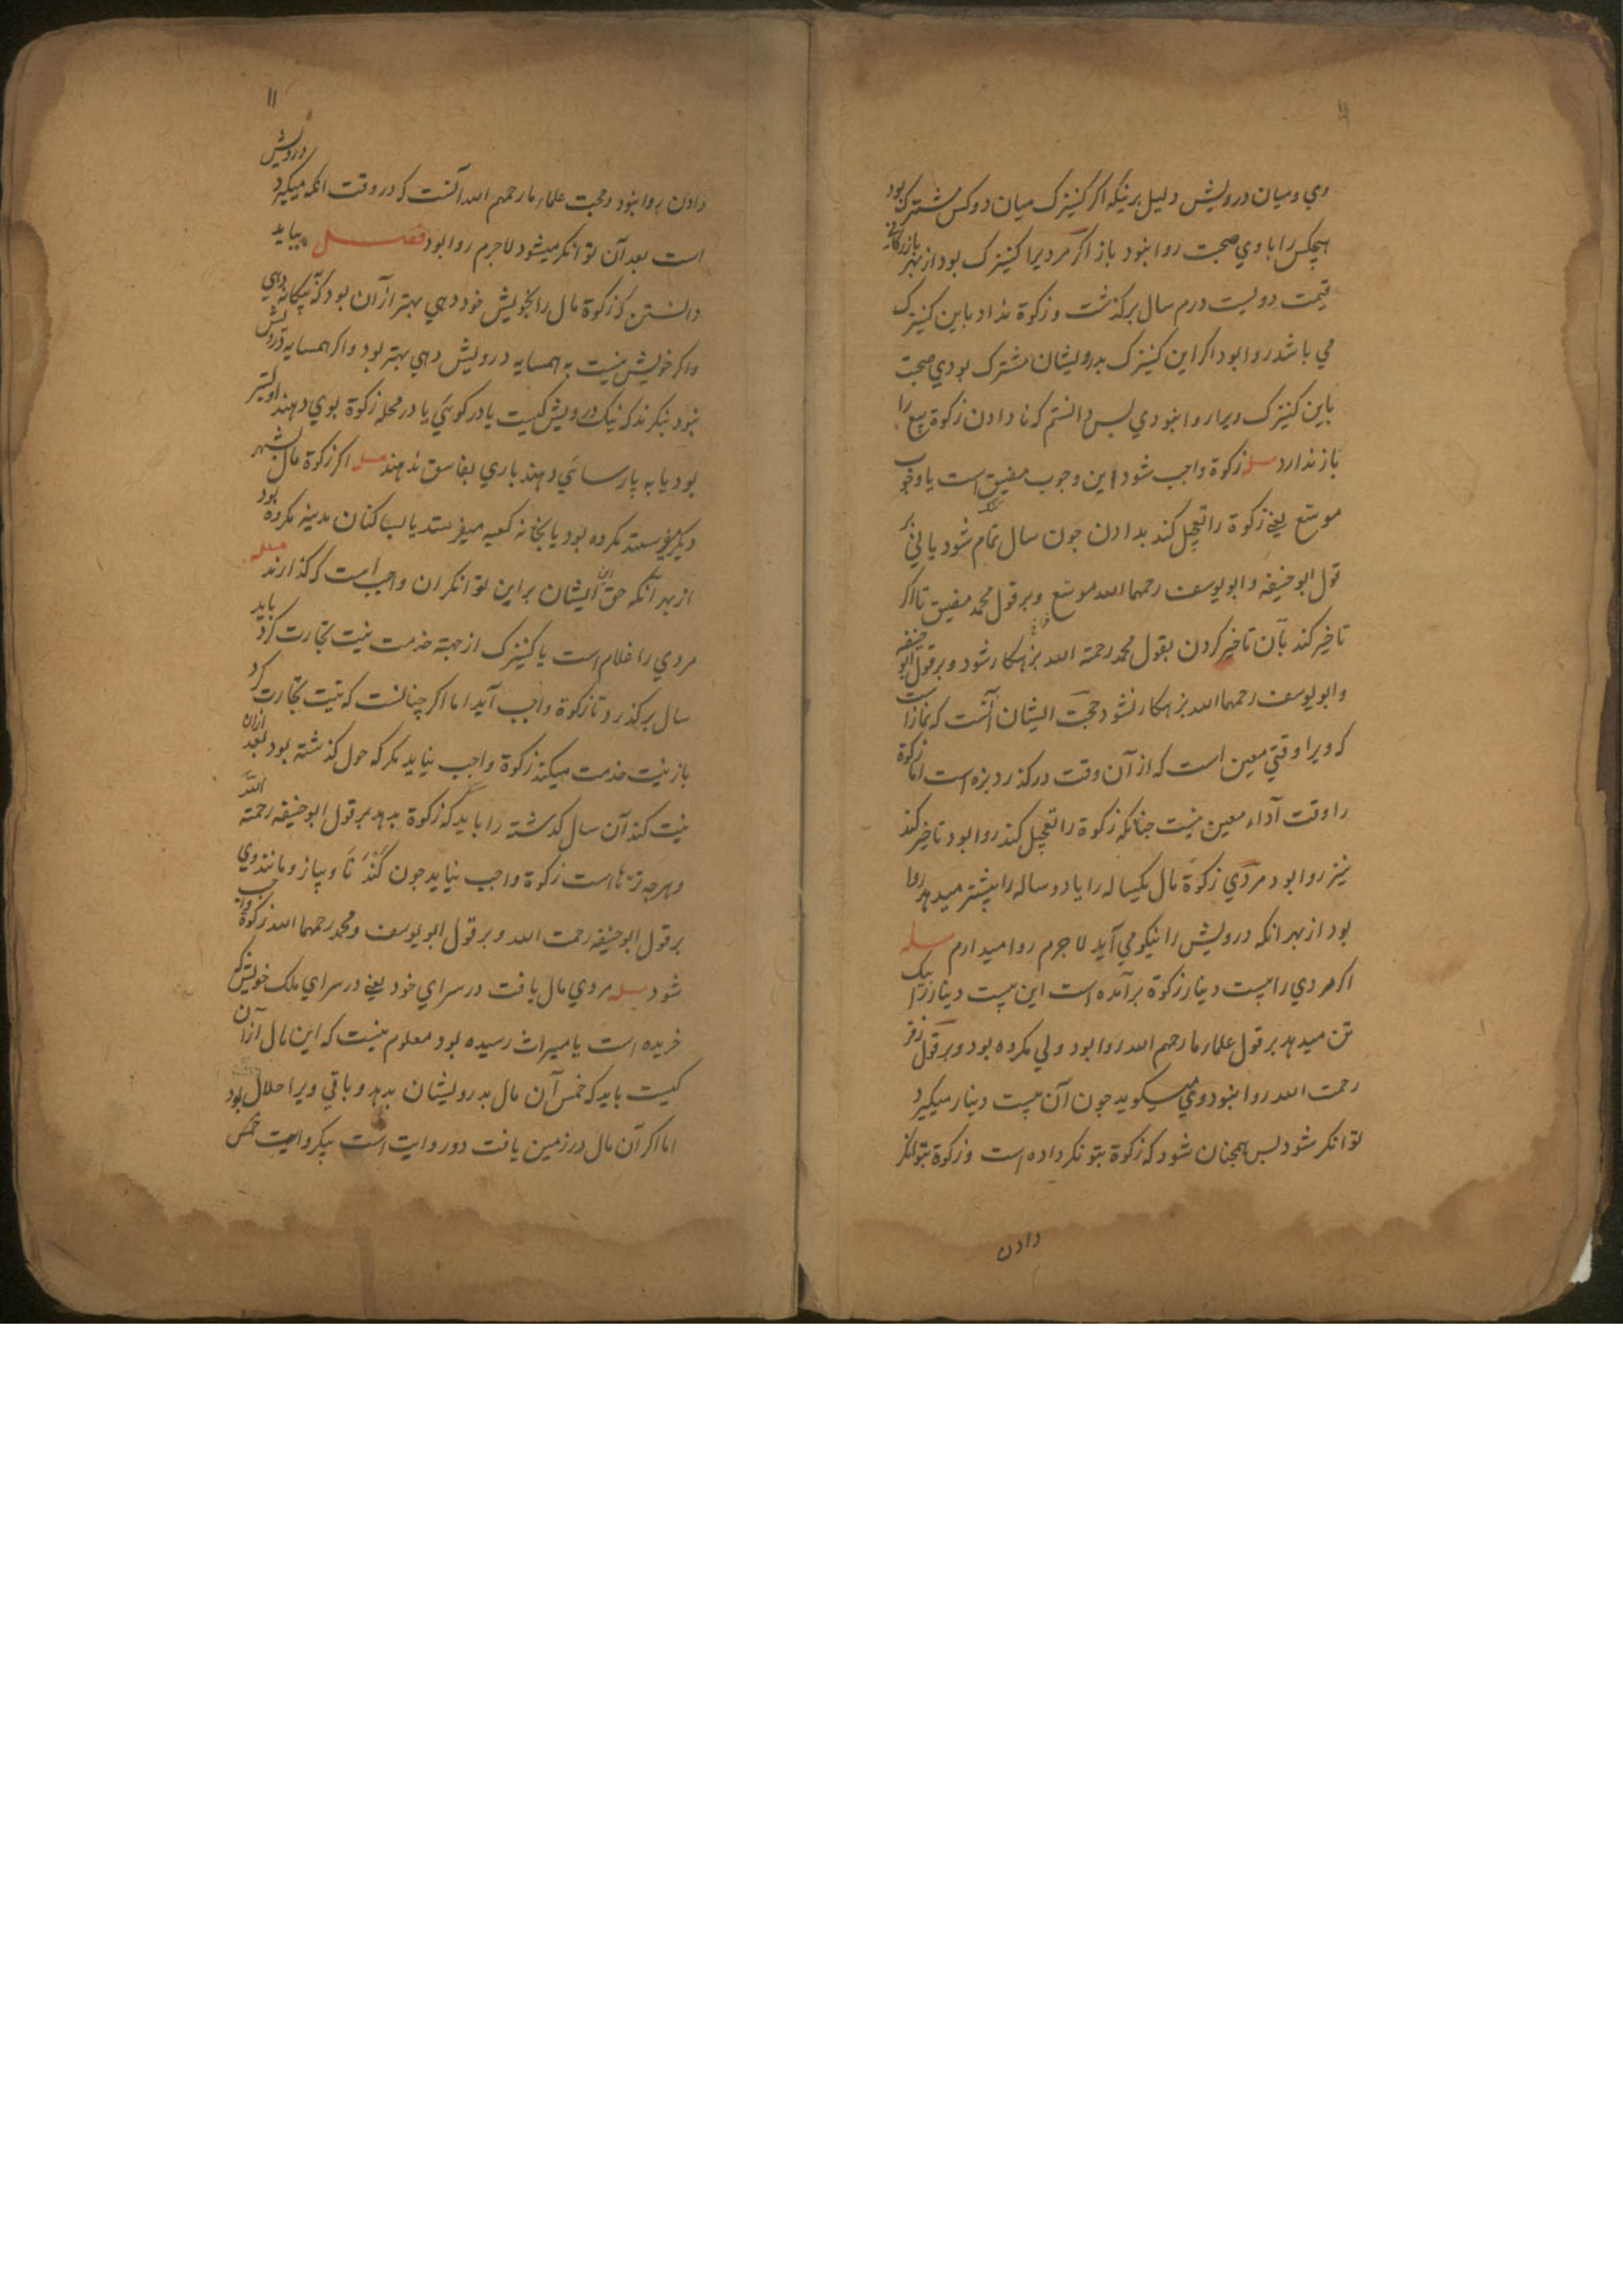 وي وميان درويش دليل برنيكه اكر كنيزك ميان دوكس مشترك بود
هيچكس را با وي صحبت روا نبود باز اكر مرديرا كنيزك بود از بهر بازركاني
قيمت دويست درم سال بركذشت و زكوة نداد باين كنيزك
مي باشد روا بود اكر اين كنيزك بدرويشان مشترك بودي صحبت
باين كنيزك ويرا روا نبودي پس دانستم كه نا دادن زكوة بيع را
باز ندارد مسله زكوة واجب شود اين وجوب مضيق است يا وجوب
موسّع يعني زكوة را تعجيل كند بدادن جون سال تمام شود يا ني بر
قول ابو حنيفه وابو يوسف رحمهما الله موسّع وبر قول محمد مضيق تا اكر
تاخير كند بآن تاخير كردن بقول محمد رحمة الله بزهكار شود و برقول ابو حنيفه
وابو يوسف رحمهما الله بزهكار نشود حجّت ايشان آنست كه نماز
كه ويرا وقتي معين است كه از آن وقت دركذرد بزه است اما زكوة
را وقت آداء معين نيست جنانكه زكوة را تعجيل كند روا بود تاخير كند
نيز روا بود مردي زكوة مال يكساله را يا دو ساله را پيشتر ميدهد روا
بود از بهر انكه درويش را نيكو مي آيد لا جرم روا ميدارم مسله
اكر مردي را بيست دينار زكوة برآمده است اين بيست دينار را بيك
تن ميدهد بر قول علماء ما رحمهم الله روا بود ولي مكروه بود وبر قول زفر
رحمت الله روا نبود وي ميكويد جون آن بيست دينار ميكيرد
توانكر شود پس همجنان شود كه زكوة بتونكر داده است و زكوة بتوانكر
دادن
١١
دادن روا نبود وحجت علماء ما رحمهم الله آنست كه در وقت انكه ميكيرد درويش
است بعد آن توانكر ميشود لا جرم روا بود فصل ببايد
دانستن كه زكوة مال را بخويش خود دهي بهتر از آن بود كه به بيكانه دهي
واكر خويش نيست به همسايه درويش دهي بهتر بود واكر همسايه درويش
نبود بنكرند كه نيك درويش كيست يا در كوئي يا در محله زكوة بوي دهند اوليتر
بود يا به پارسائي دهند باري بفاسق ندهند مسله اكر زكوة مال بشهر
ديكر ميفرستد مكروه بود يا بخانه كعبه ميفرستد يا بساكنان مدينه مكروه بود
از بهر آنكه حق ايشان براين توانكران واجب است كه كذارند مسله
مردي را غلام است يا كنيزك از جهة خدمت نيت تجارت كرد بايد
سال بركذرد تا زكوة واجب آيد اما اكر چنانست كه نيت تجارت كرد
باز نيت خدمت ميكند زكوة واجب نيايد مكر كه حول كذشته بود بعد ازان
نيت كند آن سال كذشته را بايد كه زكوة بدهد بر قول ابو حنيفه رحمته الله
و هرجه تره است زكوة واجب نيايد جون كندنا وپياز ومانند وي
بر قول ابو حنيفه رحمت الله وبر قول ابو يوسف ومحمد رحمهما الله زكوة واجب
شود مسله مردي مال يافت در سراي خود يعني در سراي ملك خويش كه
خريده است يا ميراث رسيده بود معلوم نيست كه اين مال ازان
كيست بايد كه خمس آن مال بدرويشان بدهد وباقي ويرا حلال بود
اما اكر آن مال در زمين يافت دو روايت است بيكروايت خمس